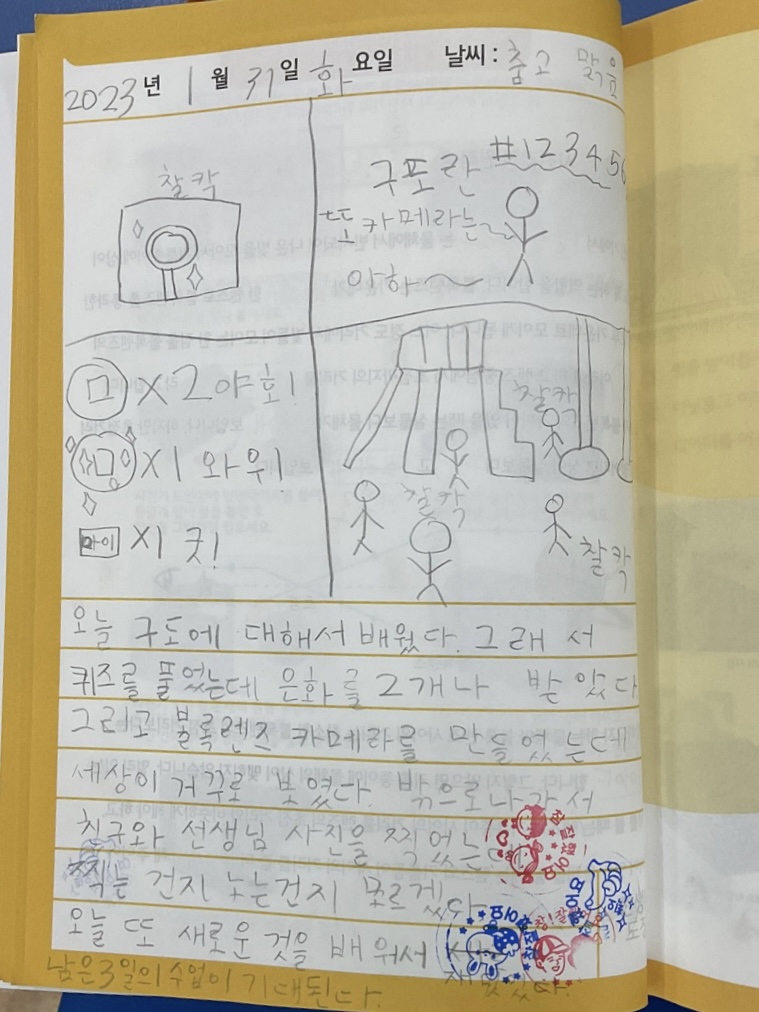 2023년 1월 31일 화요일 날씨 : 춥고 맑음
찰칵
구포란 #123456
또 카메라는
아하
ㅁ X2 야호!
ㅁ X1 와위!
마이 X1 굿!
찰칵
찰칵
찰칵
오늘 구도에 대해서 배웠다. 그래 서
퀴즈를 풀었는데 은화를 2개나 받았다
그리고 볼록렌즈 카메라를 만들었는데
세상이 거꾸로 보였다. 밖으로 나가서
친구와 선생님 사진을 찍었는데
찍는 건지 노는건지 모르게
오늘 또 새로운 것을 배워서 재밌었다.
남은 3일의 수업이 기대된다.